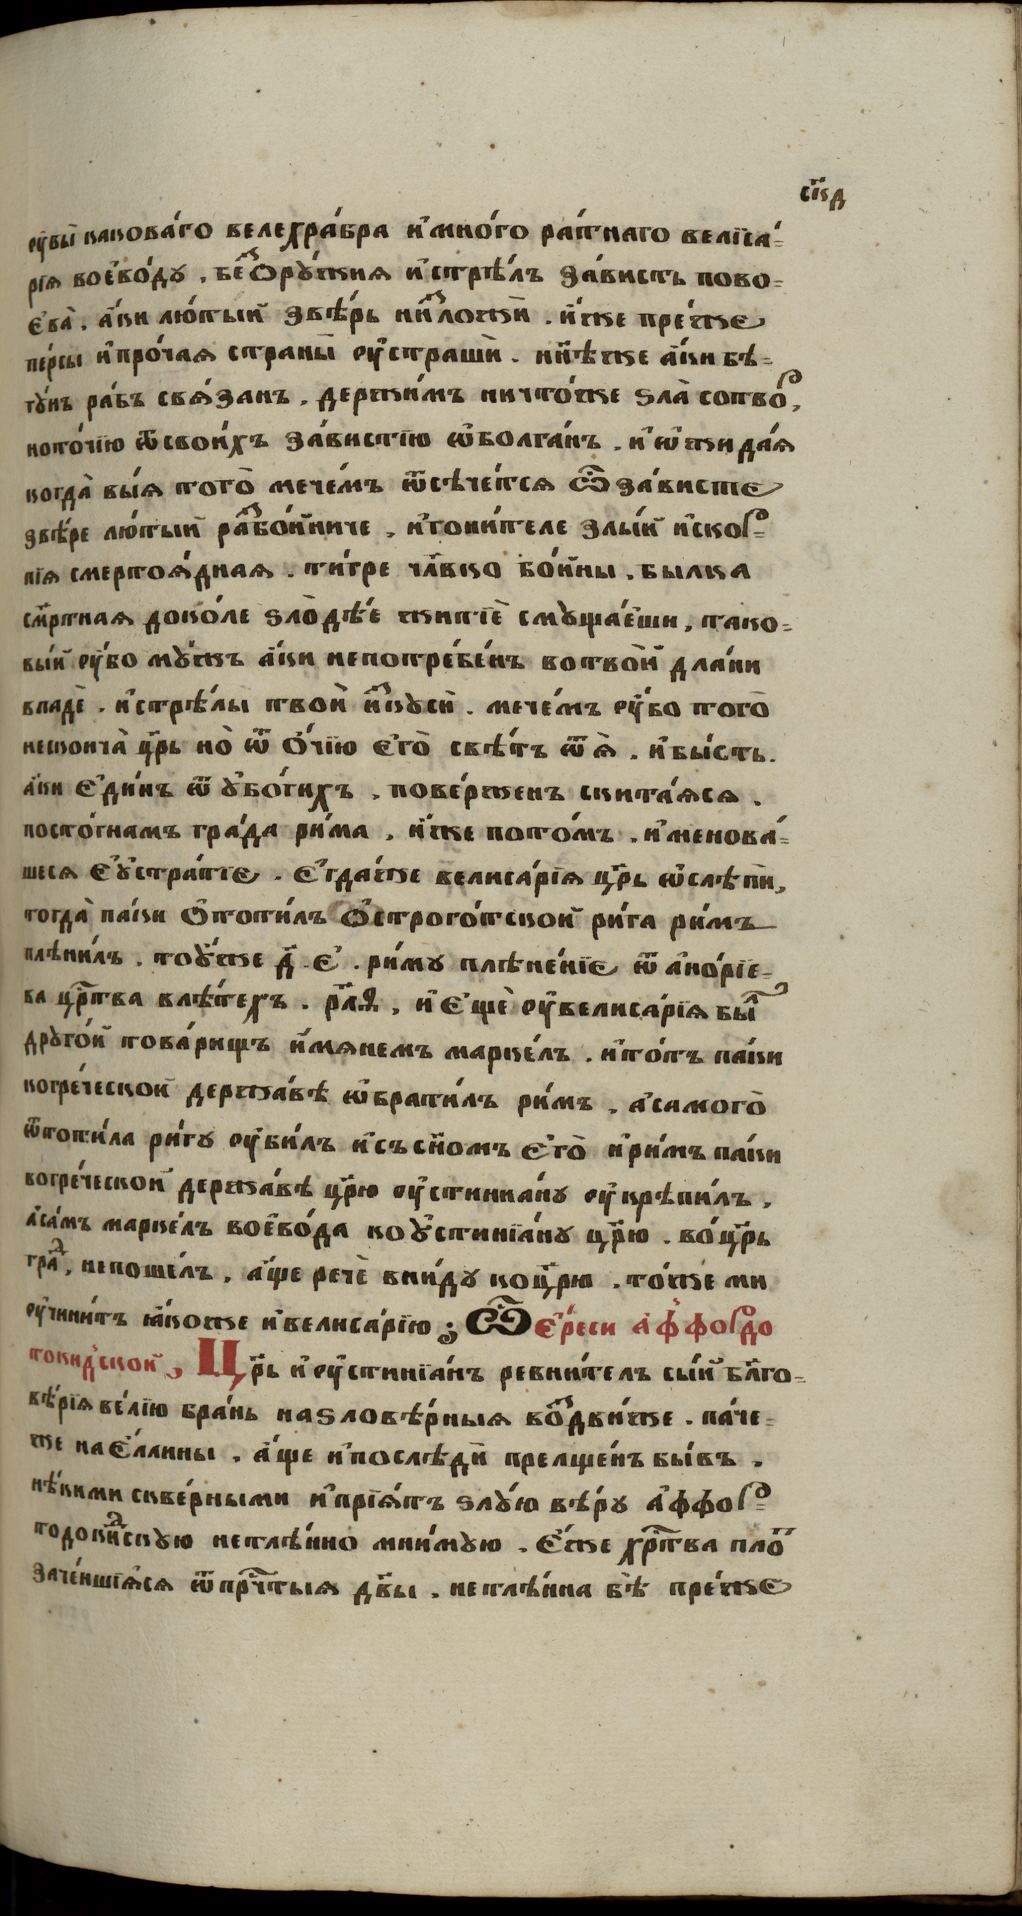 сп҃кд
ᲂу҆вы̀ каково́го велехра́бра и҆мно́го ра́тнаго велїса́=
рїя воево́ду . беⷥѻру́жия и҆стрѣ́лъ за́висть пово=
ева̀ . а҆́ки лю́тый звѣ́рь ниⷥложѝ . и҆́же пре́жде
пе́рсы и҆про́чая страны̀ ᲂу҆страшѝ . нн҃ѣже а҆́ки бѣ=
гу́нъ ра́бъ свя́занъ . держи́мъ ничто́же ѕла̀ сотво́р ,
ното́чїю ѿсвои́хъ за́вистїю ѡ҆болга́нъ . и҆ѡ҆жида́я
когда̀ вы́я того̀ мече́мъ ѿсѣче́тся Ѽ за́висте
звѣ́ре лю́тый раⷥбо́йниче . и҆гони́теле злы́й и҆скор=
пїя смертоя́дная . ти́гре чл҃вко бо́йны . былка
см҃ртная доко́ле ѕлодѣ́е житїѐ смуща́еши . тако=
вы́й ᲂу҆́бо му́жъ а҆́ки непотре́бенъ вотво́й дла́ни
впадѐ . и҆стрѣ́лы твоѝ и҆ⷥкусѝ . мече́мъ ᲂу҆́бо того̀
несконча̀ цр҃ь но̀ ѿ ѻ҆́чїю є҆го̀ свѣ́тъ ѿя̀ . и҆бы́сть .
а҆́ки є҆ди́нъ ѿ убо́гихъ . пове́рженъ скита́яся .
посто́гнамъ гра́да ри́ма . и҆́же пото́мъ . и҆менова́=
шеся є҆ѵстра́тїе . є҆гда́же велиса́рїя цр҃ь ѡ҆слѣпѝ ,
тогда̀ па́ки ѻ҆топи́лъ ѻ҆строго́тской ри́га ри́мъ
плѣни́лъ . тоу́же д҃ . є҃ . ри́му плѣне́нїе ѿ а҆но́рїе=
ва цр҃тва влѣ́техъ . рл҃ѳ , и҆ є҆щѐ ᲂу҆велиса́рїя быⷧ
друго́й това́рищъ и҆́мянемъ марке́лъ . и҆то́тъ па́ки
когре́ческой держа́вѣ ѡ҆брати́лъ ри́мъ . а҆самого̀
ѿтопи́ла ри́гу ᲂу҆би́лъ и҆съсн҃омъ є҆го̀ и҆ри́мъ па́ки
когре́ческой держа́вѣ цр҃ю ᲂу҆стиниа́ну ᲂу҆крѣпи́лъ .
а҆са́мъ марке́лъ воево́да коу҆стинїа́ну цр҃ю . во́цр҃ь
граⷣ , непоше́лъ . а҆́ще речѐ вни́ду коцр҃ю . то́же ми
ᲂу҆чини́тъ ꙗ҆́коже и҆велиса́рїю ; Ѽ е́реси а҆ффордо
токидⷭской , Цр҃ь и҆ᲂу҆стинїа́нъ ревни́тель сы́й бл҃го=
вѣ́рїя ве́лїю бра́нь наѕловѣ́рныя воⷥдви́же . па́че=
же нає҆́ллины . а҆́ще и҆послѣдѝ прелще́нъ бы́въ .
нѣ́кими скве́рными и҆прїя́тъ ѕлу́ю вѣ́ру а҆ффор=
тодокиⷣскую нетлѣ́нно мни́мую . є҆́же хр҃тва плоⷮ
заче́ншїяся ѿпрч҃тыя дв҃ы . нетлѣ́нна бѣ̀ пре́жде